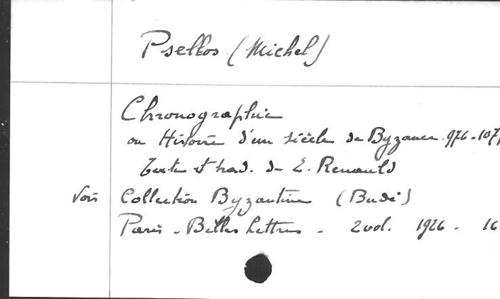 Psellos (Michel)
Chronographie
ou Histoire d'un siècle de Byzance. 976-107
Texte et trad. de E. Renauld
Voir Collection Byzantine (Budé)
Paris - Belles Lettres - 2 vol. 1926 - 16